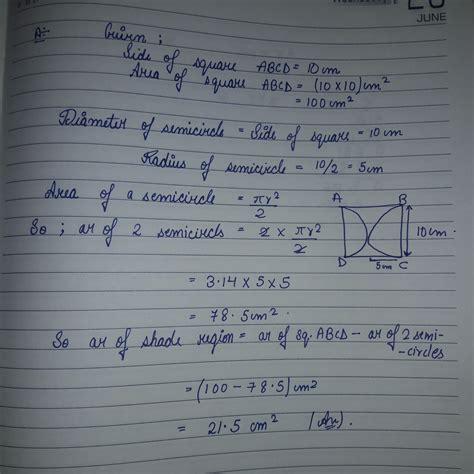 JUNE
A:- Given;
Side of square ABCD = 10 cm
Area of square ABCD = (10 x 10) cm²
= 100 cm²
Diameter of semicircle = Side of square = 10 cm
Radius of semicircle = 10/2 = 5 cm
Area of a semicircle = πr²/2
So ; ar of 2 semicircls = 2 x πr²/2
A B
10 cm
D 5 cm C
= 3.14 x 5 x 5
= 78.5 cm²
So ar of shade region = ar of sq. ABCD – ar of 2 semi-
-circles
= (100 - 78.5) cm²
= 21.5 cm² (An).